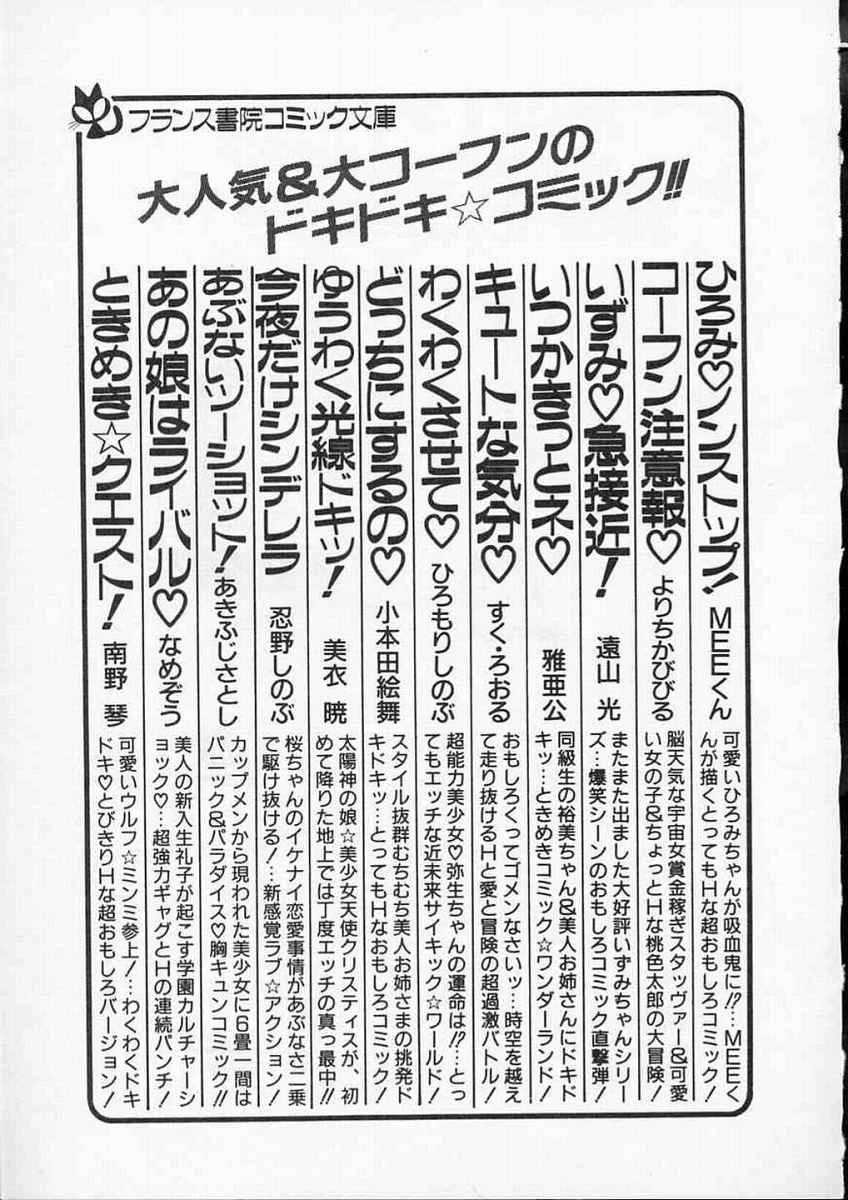 フランス書院コミック文庫
大人気&大コーフンの
ドキドキ☆コミック!!
ひろみ♡ノンストップ! MEEくん
可愛いひろみちゃんが吸血鬼に!?…MEEく
んが描くとってもHな超おもしろコミック!
コーフン注意報♡ よりちかびびる
脳天気な宇宙女賞金稼ぎスタッヴァー&可愛
い女の子&ちょっとHな桃色太郎の大冒険!
いずみ♡急接近! 遠山 光
またまた出ました大好評いずみちゃんシリー
ズ…爆笑シーンのおもしろコミック直撃弾!
いつかきっとネ♡ 雅亜公
同級生の裕美ちゃん&美人お姉さんにドキド
キッ…ときめきコミック☆ワンダーランド!
キュートな気分♡ すく・ろおる
おもしろくってゴメンなさいッ…時空を越え
て走り抜けるHと愛と冒険の超過激バトル!
わくわくさせて♡ ひろもりしのぶ
超能力美少女♡弥生ちゃんの運命は!?…とっ
てもエッチな近未来サイキック☆ワールド!
どっちにするの♡ 小本田絵舞
スタイル抜群むちむち美人お姉さまの挑発ド
キドキッ…とってもHなおもしろコミック!
ゆうわく光線ドキッ! 美衣 暁
太陽神の娘☆美少女天使クリスティスが、初
めて降りた地上では丁度エッチの真っ最中!!
今夜だけシンデレラ 忍野しのぶ
桜ちゃんのイケナイ恋愛事情があぶなさ二乗
で駆け抜ける!…新感覚ラブ☆アクション!
あぶないツーショット! あきふじさとし
カップメンから現われた美少女に6畳一間は
パニック&パラダイス♡胸キュンコミック!!
あの娘はライバル♡ なめぞう
美人の新入生礼子が起こす学園カルチャーシ
ョック♡…超強力ギャグとHの連続パンチ!
ときめき☆クエスト! 南野 琴
可愛いウルフ☆ミンミ参上!…わくわくドキ
ドキ♡とびきりHな超おもしろバージョン!